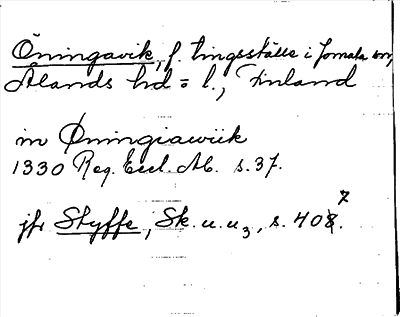 Öningavik, f. tingsställe i Jomala sn,
Ålands hd o l., Finland
in Øningiawiik
1330 Reg. Eccl. Ab. s. 37.
jfr Styffe, Sk. u. u 3, s. 408. 7